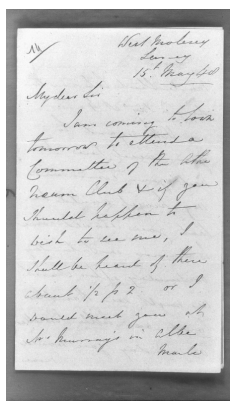 14/
West Molesey
Surrey
15th May 48
My dear Sir
I am coming to town
tomorrow to attend a
Committee of the Athe
naeum Club & if you
should happen to
wish to see me, I
shall be heard of there
about ½ p 2 or I
would meet you at
Mr Murray's in Albe
marle